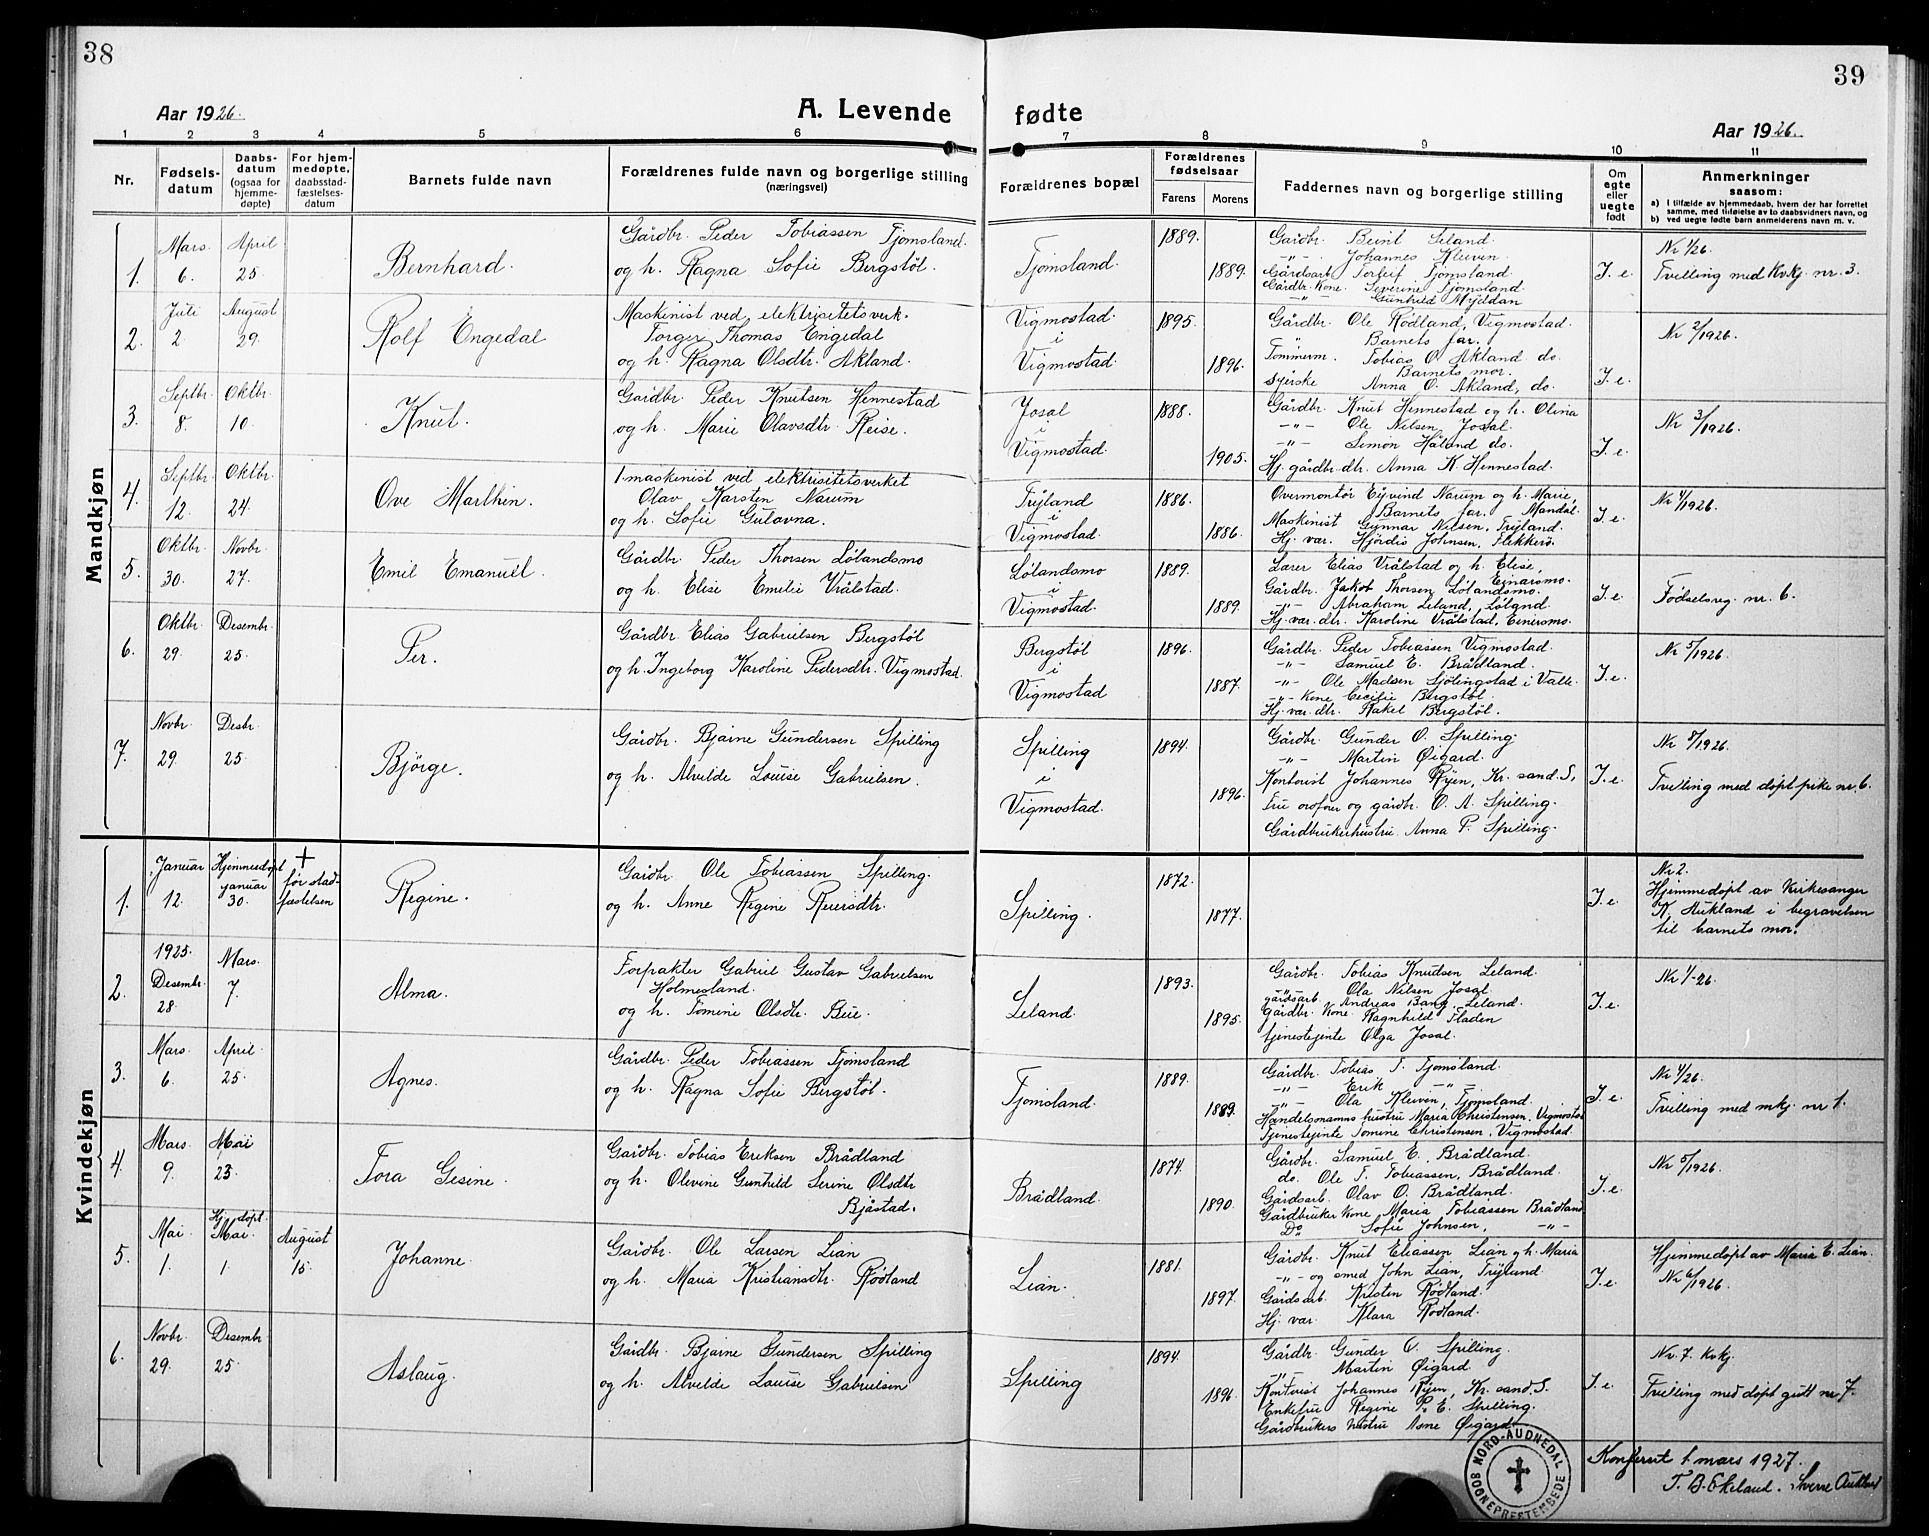 38
39
Aar 1926.
A. Levende fødte
Aar 1926.
1 2 3 4 5 6 7 8 9 10 11
Nr.
Fødsels-
datum
Daabs-
datum
(ogsaa for
hjemme-
døpte)
For hjem-
medøpte,
daabsstad-
fæstelses-
datum
Barnets fulde navn
Forældrenes fulde navn og borgerlige stilling
(næringsvei)
Forældrenes bopæl
Forældrenes
fødselsaar
Farens Morens
Faddernes navn og borgerlige stilling
Om
egte
eller
uegte
født
Anmerkninger
saasom:
a) I tilfælde av hjemmedaab, hvem der har forrettet
samme, med tilføielse av to daabsvidners navn, og
b) ved uegte fødte barn anmelderens navn m. v.
Mandkjøn
1.
Mars
6.
April
25
Bernhard.
Gårdbr. Peder Tobiassen Tjomsland.
og h. Ragna Sofie Bergstøl.
Tjomsland.
1889.
1889.
Gårdbr. Beint Leland.
-"- Johannes Kleiven.
Gårdsarb. Torleif Tjomsland
Gårdbr. Kone. Severine Tjomsland
-"- Gunhild Myddan
I. e.
Nr 1/26.
Tvilling med Kvkj. nr. 3.
2.
Juli
2
August
29.
Rolf Engedal
Maskinist ved elektrisitetsverk.
Torger Thomas Engedal
og h. Ragna Olsdtr. Akland.
Vigmostad.
i
Vigmostad.
1895.
1896.
Gårdbr. Ole Rødland, Vigmostad.
Barnets far.
Tømmerm. Tobias O. Akland do.
Barnets mor.
Syerske Anna O. Akland, do.
I. e.
Nr 2/1926.
3.
Septbr.
8.
Oktbr.
10.
Knut.
Gardbr. Peder Knutsen Hennestad
og h. Marie Olavsdtr. Reise.
Josal
i
Vigmostad.
1888.
1905.
Gårdbr. Knut Hennestad og h. Olina
-"- Ole Nilsen Josal.
-"- Simon Håland do.
Hj. gårdbr. dtr. Anna K. Hennestad.
I. e.
Nr 3/1926.
4.
Septbr.
12.
Oktbr.
24.
Ove Marthin.
1. maskinist ved elektrisitetsverket
Olav Karsten Narum
og h. Sofie Gulovna.
Tryland
i
Vigmostad.
1886.
1886.
Overmontør Eyvind Narum og h. Marie,
Barnets far. Mandal.
Maskinist Gunnar Nilsen, Tryland.
Hj. var. Hjördis Johnsen, Flekkerø.
I. e.
Nr 4/1926.
5.
Oktbr.
30.
Novbr.
27.
Emil Emanuel.
Gårdbr. Peder Thorsen Lølandsmo
og h. Elise Emilie Vrålstad.
Lølandsmo
i
Vigmostad.
1889.
1889.
Lærer Elias Vrålstad og h. Elise,
Einarsmo.
Gårdbr. Jakob Thorsen Lølandsmo.
-"- Abraham Leland, Løland
Hj. var. dtr. Karoline Vrålstad, Einersmo.
I. e.
Fødselsreg. nr. 6.
6.
Oktbr.
29.
Desembr.
25.
Per.
Gårdbr. Elias Gabrielsen Bergstøl
og h. Ingeborg Karoline Pedersdtr. Vigmostad.
Bergstøl
i
Vigmostad
1896.
1887.
Gårdbr. Peder Tobiassen Vigmostad.
-"- Samuel E. Brådland.
-"- Ole Madsen Sjölingstad i Valle.
-"- Kone Cecilie Bergstøl.
Hj. var. dtr. Rakel Bergstøl.
I. e.
Nr 5/1926.
7.
Novbr.
29.
Desbr.
25.
Björge.
Gårdbr. Bjarne Gundersen Spilling
og h. Alvilde Louise Gabrielsen.
Spilling
i
Vigmostad.
1894.
1896.
Gårdbr. Gunder O. Spilling.
-"- Martin Øigard.
Kontorist Johannes Ryen, Kr. sand. S,
Fru ordfører og gårdbr. O. A. Spilling.
Gårdbrukerhustru Anna P. Spilling.
I. e.
Nr 8/1926.
Tvilling med døpt pike nr. 6.
Kvindekjøn
1.
Januar
12.
Hjemmedøpt
januar
30.
+
før stad-
fæstelsen
Regine.
Gårdbr. Ole Tobiassen Spilling.
og h. Anne Regine Reiersdtr.
Spilling.
1872.
1877.
I. e.
Nr 2.
Hjemmedøpt av Kirkesanger
K. Aukland i begravelsen
til barnets mor.
2.
1925.
Desembr.
28.
Mars.
7.
Alma.
Forpakter Gabriel Gustav Gabrielsen
Holmesland.
og h. Tomine Olsdtr. Beie.
Leland.
1893.
1895.
Gårdbr. Tobias Knudsen Leland.
-"- Ola Nilsen Josal.
gårdsarb. Andreas Bang, Leland.
Gårdbr. Kone. Ragnhild Fladen
tjenestejente Olga Josal.
I. e.
Nr 1/-26.
3.
Mars.
6.
April.
25.
Agnes.
Gårdbr. Peder Tobiassen Tjomsland
og h. Ragna Sofie Bergstøl.
Tjomsland.
1889.
1889.
Gårdbr. Tobias T. Tjomsland.
-"- Erik -"-
-"- Ola Kleiven, Tjomsland.
Handelsmanns hustru Maria Christensen, Vigmostad
Tjenestejente Tomine Christensen, Vigmostad.
I. e.
Nr 4/26.
Tvilling med mkj. nr 1.
4.
Mars.
9.
Mai
23.
Tora Gesine.
Gårdbr. Tobias Eriksen Brådland
og h. Olevine Gunhild Serine Olsdtr
Bjåstad.
Brådland.
1874.
1890.
Gårdbr. Samuel E. Brådland.
do. Ole T. Tobiassen, Brådland.
Gårdsarb. Olav O. Brådland.
Gårdbruker Kone, Maria Tobiassen Brådland
Do Sofie Johnsen, -"-
I. e.
Nr 5/1926.
5.
Mai
1.
Hj. døpt.
Mai.
1.
August
15.
Johanne.
Gårdbr. Ole Larsen Lian
og h. Maria Kristiansdtr. Rødland
Lian.
1881.
1897.
Gårdbr. Knut Eliassen Lian og h. Maria
-"- og smed John Lian, Tryland.
Gårdsarb. Kristen Rødland.
Hj. var. Klara Rødland.
I. e.
Hjemmedøpt av Maria E. Lian.
Nr 6/1926.
6.
Novbr.
29.
Desembr.
25.
Aslaug.
Gårdbr. Bjarne Gundersen Spilling
og h. Alvilde Louise Gabrielsen
Spilling
1894.
1896.
Gårdbr. Gunder O. Spilling.
-"- Martin Øigard.
Kontorist Johannes Ryen, Kr. sand. S.
Enkefru Regine P. E. Spilling.
Gårdbrukers hustru Asne Øigard.
I. e.
Nr. 7. Kvkj.
Tvilling med døpt gutt nr 7.
Konferert 1 mars 1927.
T. B. Ekeland. Sverre Aukland
NORD-AUDNEDAL
SOGNEPRESTEMBEDE